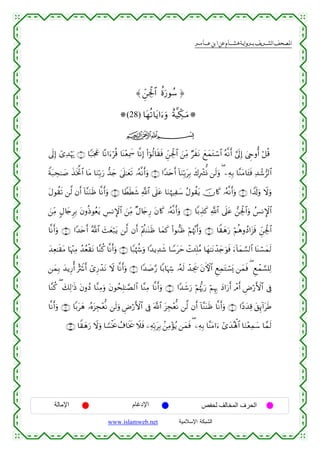 المصحف الشريف برواية هشام عن ابن عامر
﴿ سُورَةُ ٱلْجِنِّ ﴾
مَكِّيَّةٌ وَءَايَاتُهَا (28)
بِسْمِ ٱللَّهِ ٱلرَّحْمَٰنِ ٱلرَّحِيمِ
قُلْ أُوحِيَ إِلَيَّ أَنَّهُ ٱسْتَمَعَ نَفَرٌ مِّنَ ٱلْجِنِّ فَقَالُوٓا۟ إِنَّا سَمِعْنَا قُرْءَانًا عَجَبًا ۝ يَهْدِىٓ إِلَى
ٱلرُّشْدِ فَـَٔامَنَّا بِهِۦ وَلَن نُّشْرِكَ بِرَبِّنَآ أَحَدًا ۝ وَأَنَّهُۥ تَعَٰلَىٰ جَدُّ رَبِّنَا مَا ٱتَّخَذَ صَٰحِبَةً
وَلَا وَلَدًا ۝ وَأَنَّهُۥ كَانَ يَقُولُ سَفِيهُنَا عَلَى ٱللَّهِ شَطَطًا ۝ وَأَنَّا ظَنَنَّآ أَن لَّن تَقُولَ
ٱلْإِنسُ وَٱلْجِنُّ عَلَى ٱللَّهِ كَذِبًا ۝ وَأَنَّهُۥ كَانَ رِجَالٌ مِّنَ ٱلْإِنسِ يَعُوذُونَ بِرِجَالٍ مِّنَ
ٱلْجِنِّ فَزَادُوهُمْ رَهَقًا ۝ وَأَنَّهُمْ ظَنُّوا۟ كَمَا ظَنَنتُمْ أَن لَّن يَبْعَثَ ٱللَّهُ أَحَدًا ۝ وَأَنَّا
لَمَسْنَا ٱلسَّمَآءَ فَوَجَدْنَٰهَا مُلِئَتْ حَرَسًا شَدِيدًا وَشُهُبًا ۝ وَأَنَّا كُنَّا نَقْعُدُ مِنْهَا مَقَٰعِدَ
لِلسَّمْعِ فَمَن يَسْتَمِعِ ٱلْـَٔانَ يَجِدْ لَهُۥ شِهَابًا رَّصَدًا ۝ وَأَنَّا لَا نَدْرِىٓ أَشَرٌّ أُرِيدَ بِمَن
فِى ٱلْأَرْضِ أَمْ أَرَادَ بِهِمْ رَبُّهُمْ رَشَدًا ۝ وَأَنَّا مِنَّا ٱلصَّٰلِحُونَ وَمِنَّا دُونَ ذَٰلِكَ كُنَّا
طَرَآئِقَ قِدَدًا ۝ وَأَنَّا ظَنَنَّآ أَن لَّن نُّعْجِزَ ٱللَّهَ فِى ٱلْأَرْضِ وَلَن نُّعْجِزَهُۥ هَرَبًا ۝ وَأَنَّا
لَمَّا سَمِعْنَا ٱلْهُدَىٰٓ ءَامَنَّا بِهِۦ فَمَن يُؤْمِنۢ بِرَبِّهِۦ فَلَا يَخَافُ بَخْسًا وَلَا رَهَقًا ۝
الحرف المخالف لحفص الإدغام الإمالة
الشبكة الإسلامية www.islamweb.net